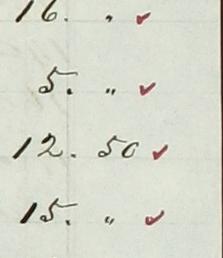 16. " ✓
5. " ✓
12. 50 ✓
15. " ✓